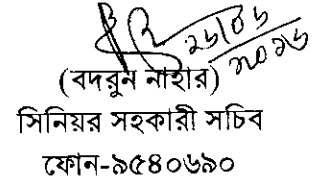 ২৬/০৬
২০১৬
(বদরুন নাহার)
সিনিয়র সহকারী সচিব
ফোন-৯৫৪০৬৯০